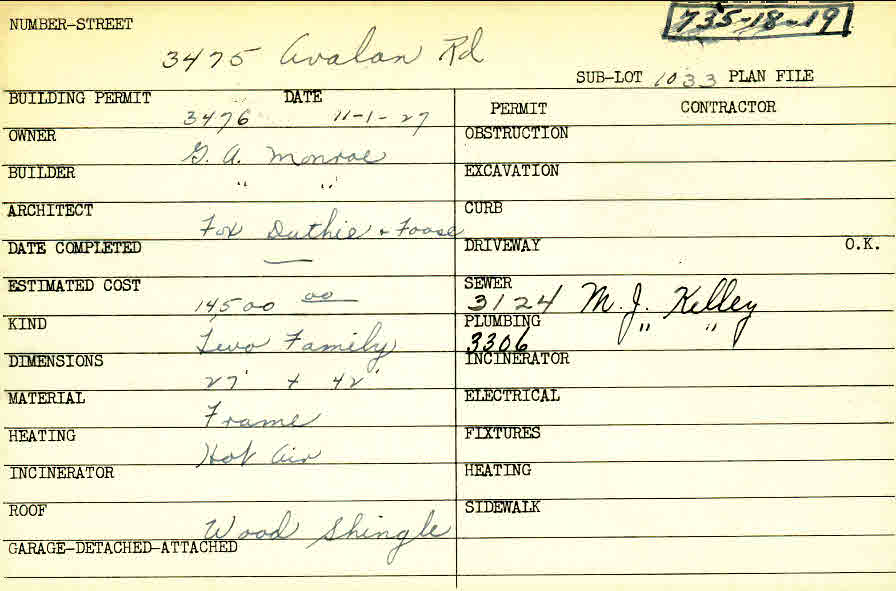 735-18-19
NUMBER-STREET
3475 Avalon Rd
SUB-LOT 1033 PLAN FILE
BUILDING PERMIT DATE
3476 11-1-27
OWNER
G. A. Monroe
BUILDER
" "
ARCHITECT
Fox Duthie + Foose
DATE COMPLETED
—
ESTIMATED COST
14500 00
KIND
Two Family
DIMENSIONS
27' + 42'
MATERIAL
Frame
HEATING
Hot Air
INCINERATOR
ROOF
Wood Shingle
GARAGE-DETACHED-ATTACHED
PERMIT CONTRACTOR
OBSTRUCTION
EXCAVATION
CURB
DRIVEWAY O.K.
SEWER
3124 M. J. Kelley
PLUMBING " "
3306
INCINERATOR
ELECTRICAL
FIXTURES
HEATING
SIDEWALK